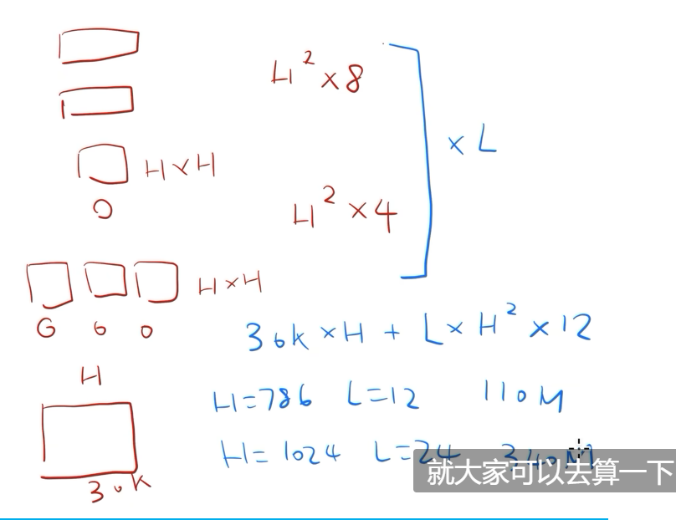 H² × 8
× L
H × H
O
H² × 4
H × H
G G O
30K × H + L × H² × 12
H
H=786 L=12 110M
H=1024 L=24 340M
30K
就大家可以去算一下